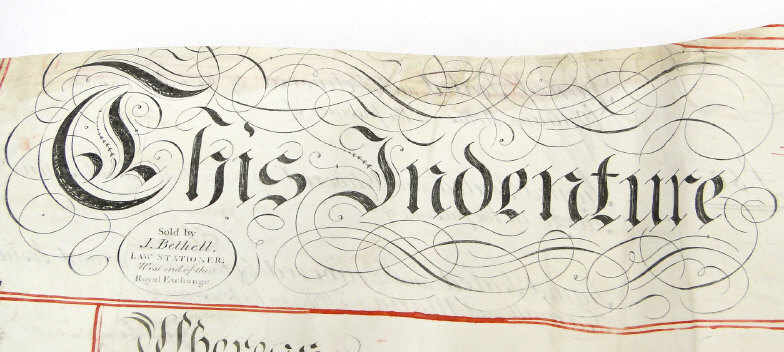 This Indenture
Sold by
J. Bethell,
LAW STATIONER,
West end of the
Royal Exchange.
Whereas